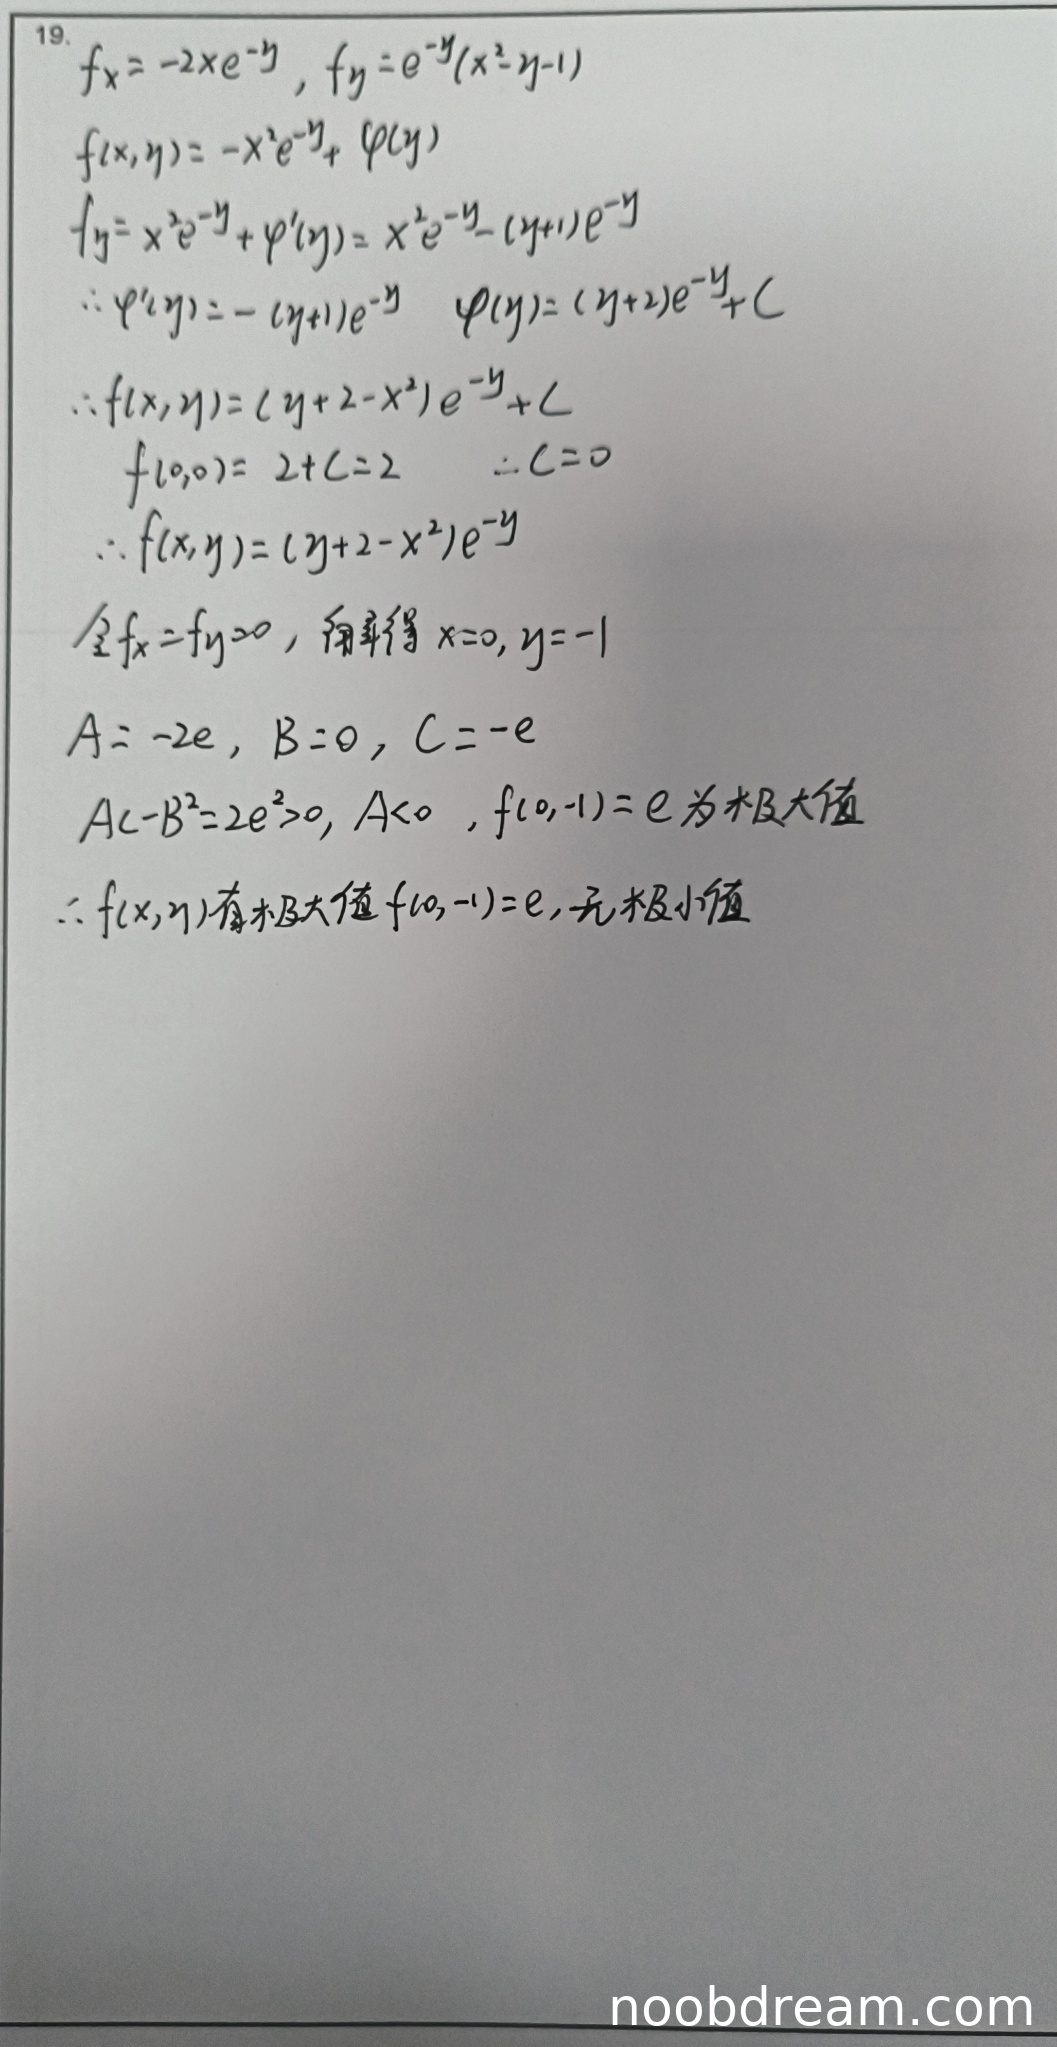 19.
fx = -2xe^-y , fy = e^-y(x²-y-1)
f(x,y) = -x²e^-y + φ(y)
fy = x²e^-y + φ'(y) = x²e^-y - (y+1)e^-y
∴φ'(y) = -(y+1)e^-y φ(y) = (y+2)e^-y + C
∴f(x,y) = (y+2-x²)e^-y + C
f(0,0) = 2+C=2 ∴C=0
∴f(x,y) = (y+2-x²)e^-y
令fx=fy=0, 解得 x=0, y=-1
A = -2e, B=0, C=-e
AC-B²=2e²>0, A<0 , f(0,-1) = e 为极大值
∴f(x,y)有极大值f(0,-1)=e,无极小值
noobdream.com